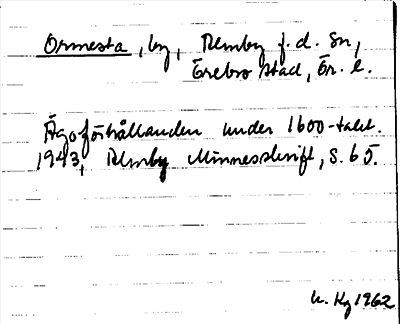 Ormesta, by, Almby f.d. sn,
Örebro stad, Ör. l.
Ägoförhållanden under 1600-talet.
1943, Almby Minnesskrift, s. 65.
u. Kg 1962